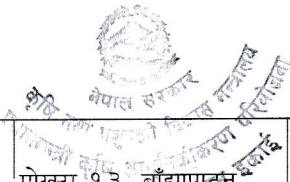 नेपाल सरकार
कृषि तथा पशुपन्छी विकास मन्त्रालय
प्रधानमन्त्री कृषि आधुनिकीकरण परियोजना
इकाई
पोखरा १३